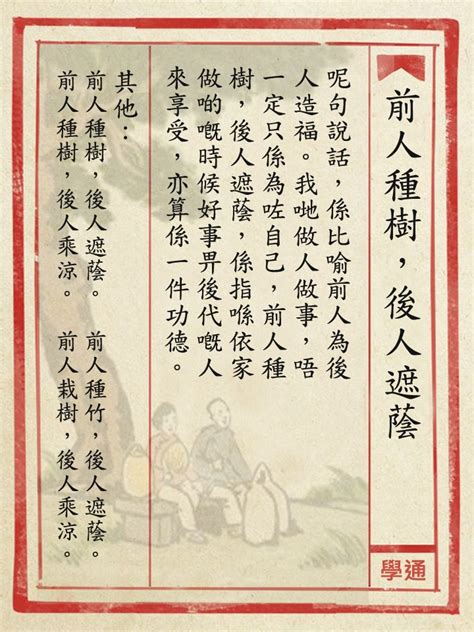 前人種樹，後人遮蔭
學通
呢句說話，係比喻前人為後
人造福。我哋做人做事，唔
一定只係為咗自己，前人種
樹，後人遮蔭，係指喺依家
做啲嘅時候好事畀後代嘅人
來享受，亦算係一件功德。
其他：
前人種樹，後人遮蔭。 前人種竹，後人遮蔭。
前人種樹，後人乘涼。 前人栽樹，後人乘涼。